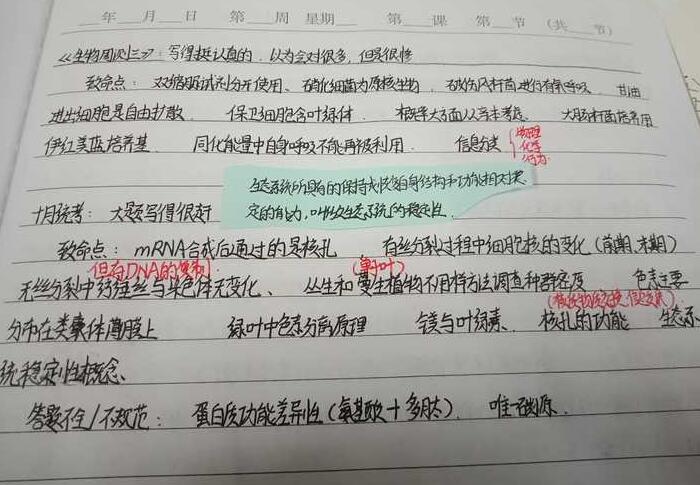 年 月 日 第 周 星期 第 课 第 节 (共 节)
《生物周测三》：写得挺认真的，以为会对很多，但是很惨
致命点：双缩脲试剂分开使用、硝化细菌为原核生物、破伤风杆菌进行有氧呼吸、甘油
进出细胞是自由扩散、保卫细胞含叶绿体、根 大多 从 考虑、大肠杆菌培养用
伊红美蓝培养基、同化能量中自身呼吸不能再被利用、信息分类
物理
化学
行为
生态系统所具有的保持或恢复自身结构和功能相对稳
定的能力，叫做生态系统的稳定性。
十月统考：大题写得很好
致命点：mRNA合成后通过的是核孔 有丝分裂过程中细胞核的变化(前期、末期)
但有DNA的复制
(单子叶)
无丝分裂中纺锤丝与染色体无变化、丛生和蔓生植物不用样方法调查种群密度 色素主要
(核质物质交换、信息交流)
分布在类囊体薄膜上 绿叶中色素分离原理 镁与叶绿素、核孔的功能 生态系
统稳定性概念、
答题不全/不规范：蛋白质功能差异性(氨基酸+多肽)、唯一碳源、